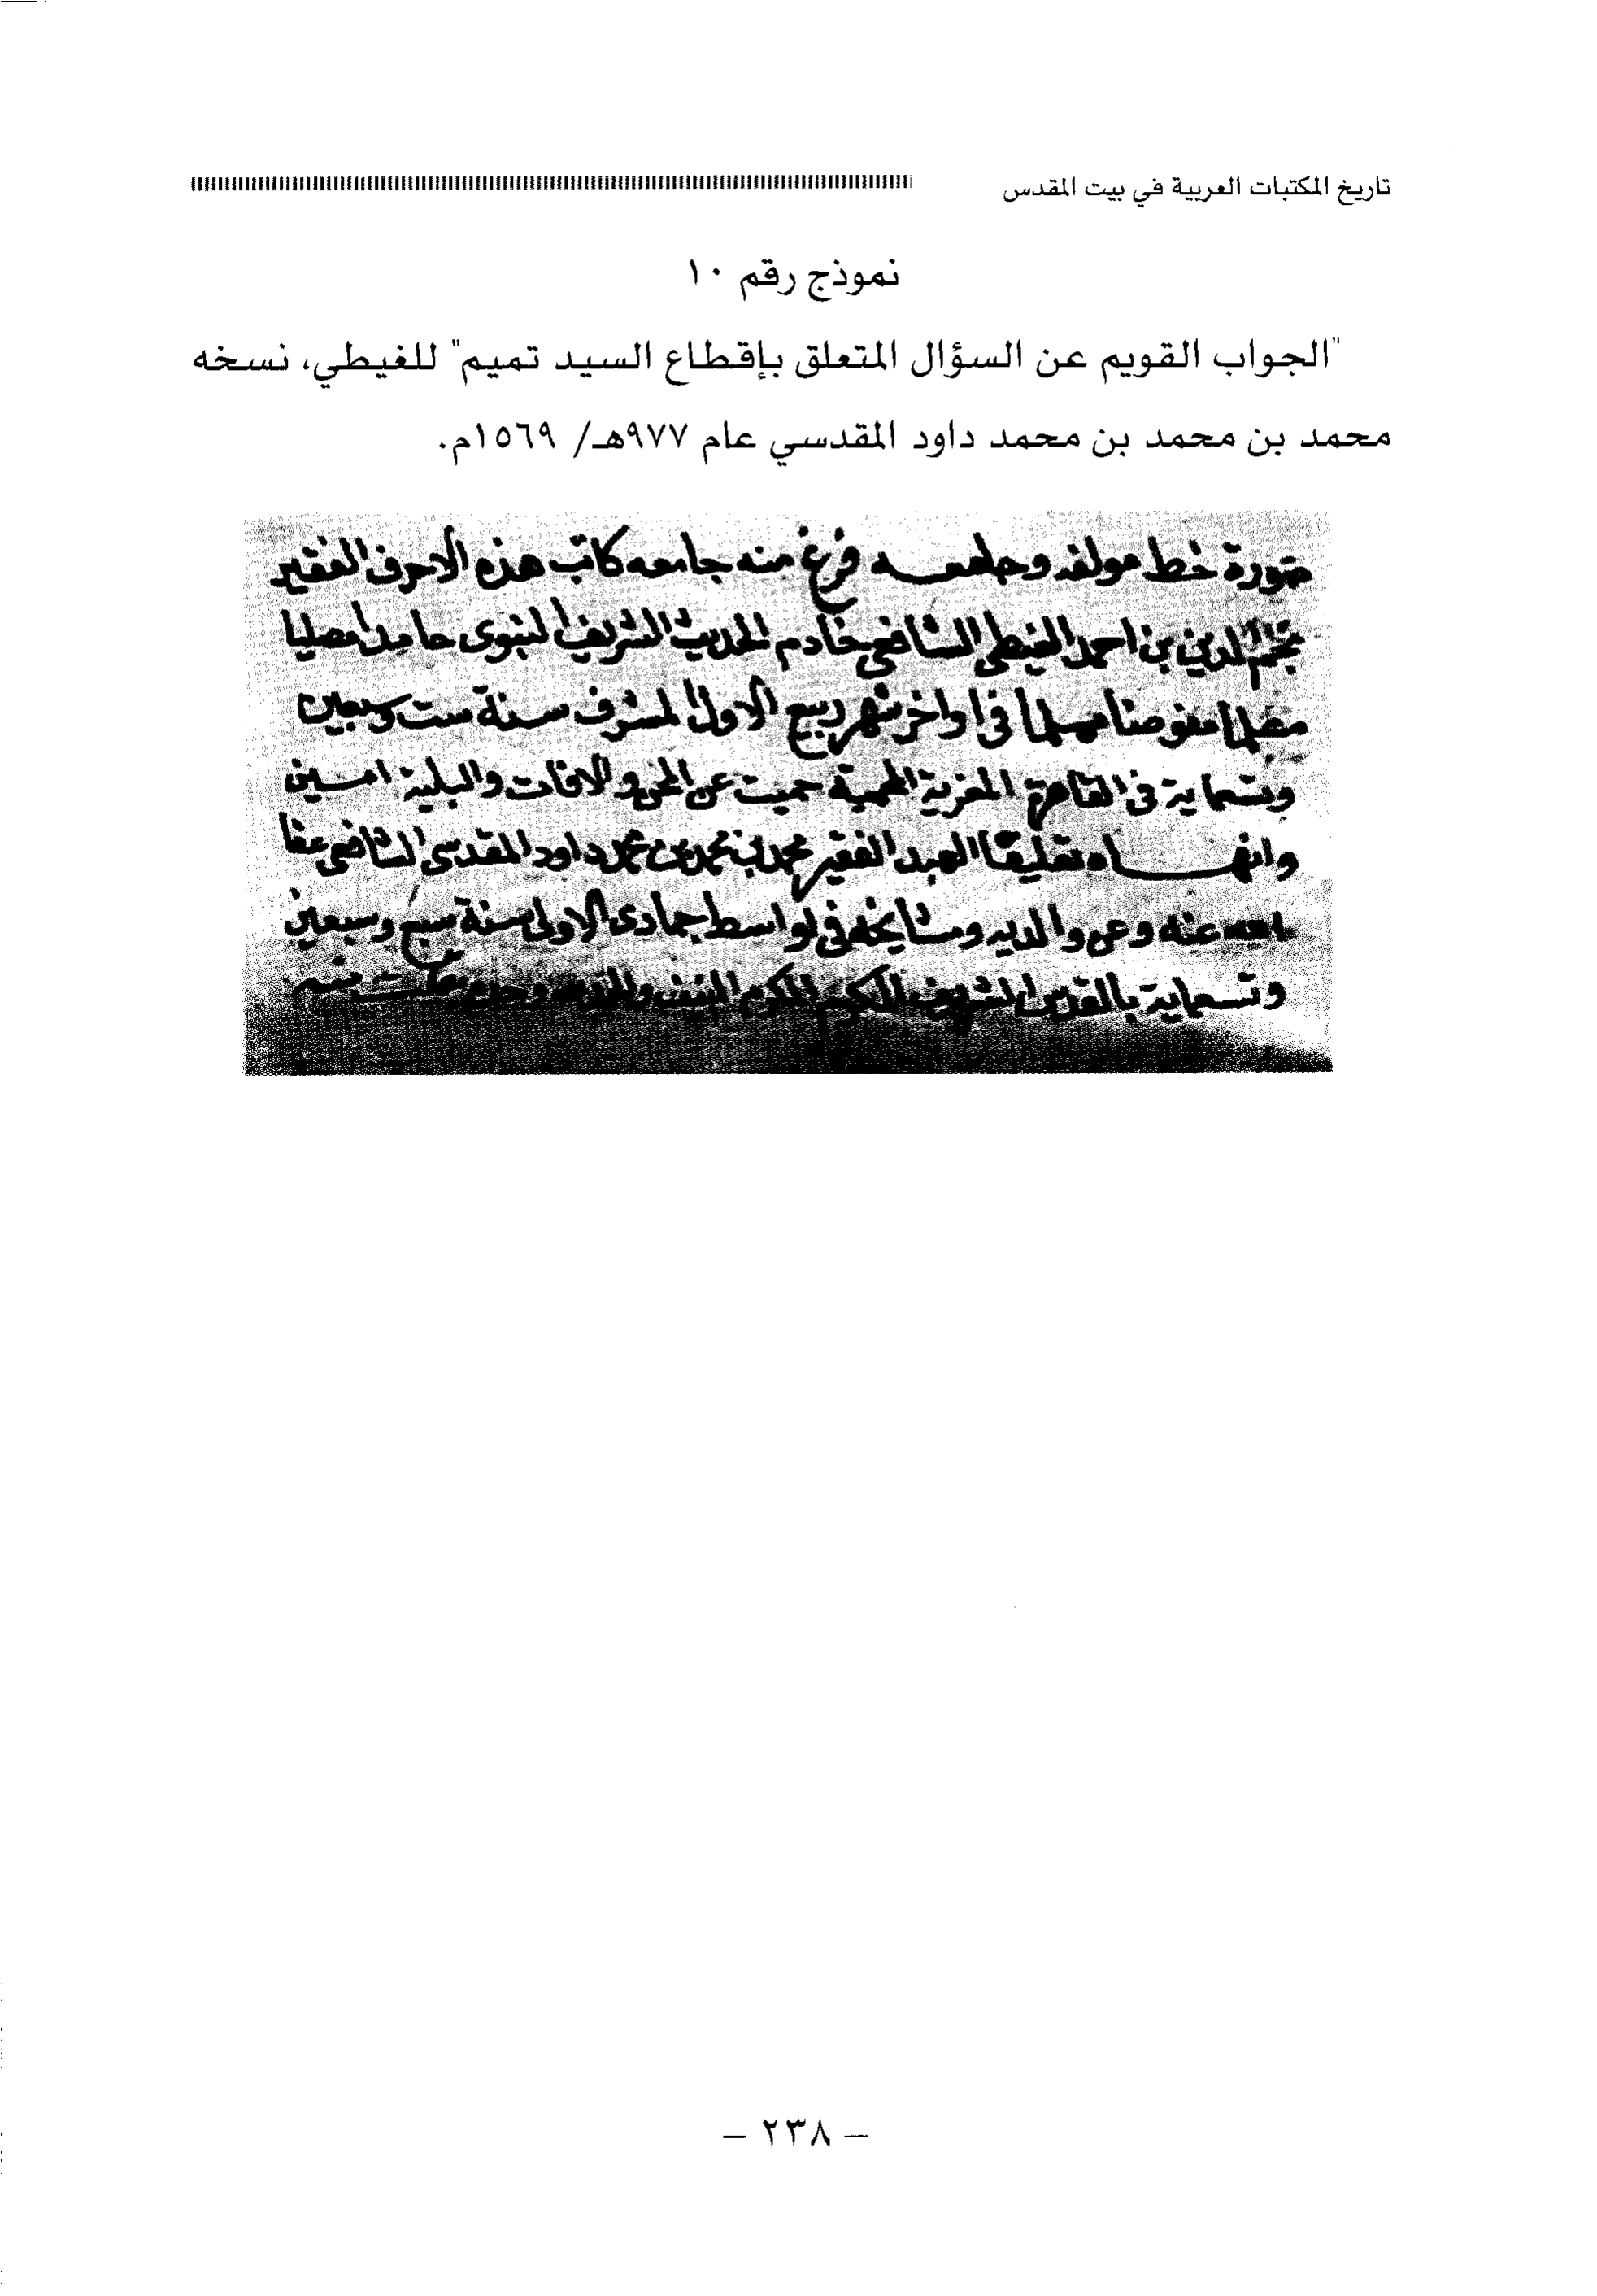 تاريخ المكتبات العربية في بيت المقدس
نموذج رقم ١٠
"الجواب القويم عن السؤال المتعلق بإقطاع السيد تميم" للغيطي، نسخه
محمد بن محمد بن محمد داود المقدسي عام ٩٧٧هـ/ ١٥٦٩م.
صورة خط مولفه وجامعه فرغ منه جامعه كاتب هذه الاحرف الفقير
نجم الدين بن احمد الغيطي الشافعي خادم الحديث الشريف النبوى حامدا مصليا
مفوضا مسلما فى اواخر شهر ربيع الاول المشرف سنة ست وسبعين
وتسماية فى القاهرة المعزية المحمية حميت عن المحن والافات والبلية امين
وانهاه تعليقا العبد الفقير محمد بن محمد بن محمد داود المقدسى الشافعى عفا
الله عنه وعن والديه ومشايخه فى اواسط جمادى الاولى سنة سبع وسبعين
وتسماية بالقدس الشريف
– ٢٣٨ –